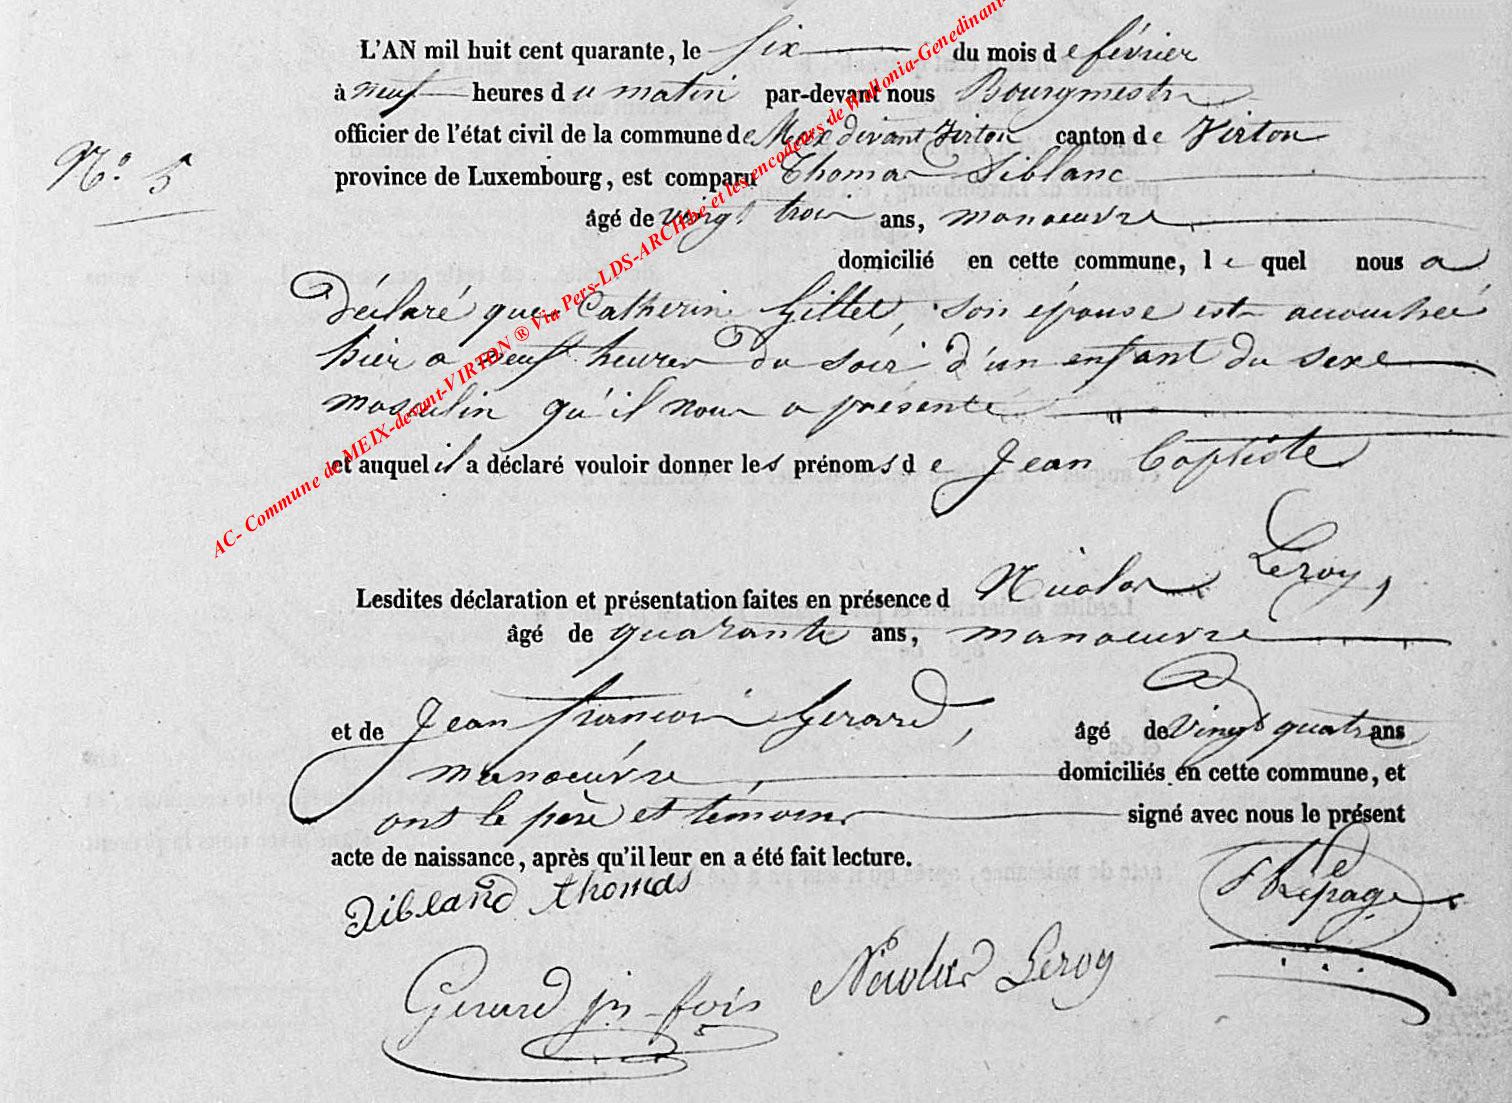 L'AN mil huit cent quarante, le six du mois de février
à neuf heures du matin par-devant nous Bourgmestre
officier de l'état civil de la commune de Meix devant Virton canton de Virton
N.o 5
province de Luxembourg, est comparu Thomas Siblanc
âgé de vingt trois ans, manoeuvre
domicilié en cette commune, lequel nous a
déclaré que Catherine Gillet, son épouse est accouchée
hier a neuf heures du soir d'un enfant du sexe
masculin qu'il nous a présenté
et auquel il a déclaré vouloir donner les prénoms de Jean Baptiste
Lesdites déclaration et présentation faites en présence d Nicolas Leroy,
âgé de quarante ans, manoeuvre
et de Jean françois Gerard, âgé de vingt quatre ans
manoeuvre, domiciliés en cette commune, et
ont le père et témoins signé avec nous le présent
acte de naissance, après qu'il leur en a été fait lecture.
thomas
Lepage
Gerard jn fois
Nicolas Leroy
AC- Commune de MEIX-devant-VIRTON ® Via Pers-LDS-ARCH.be et les encodeurs de Wallonia-Genedinant-